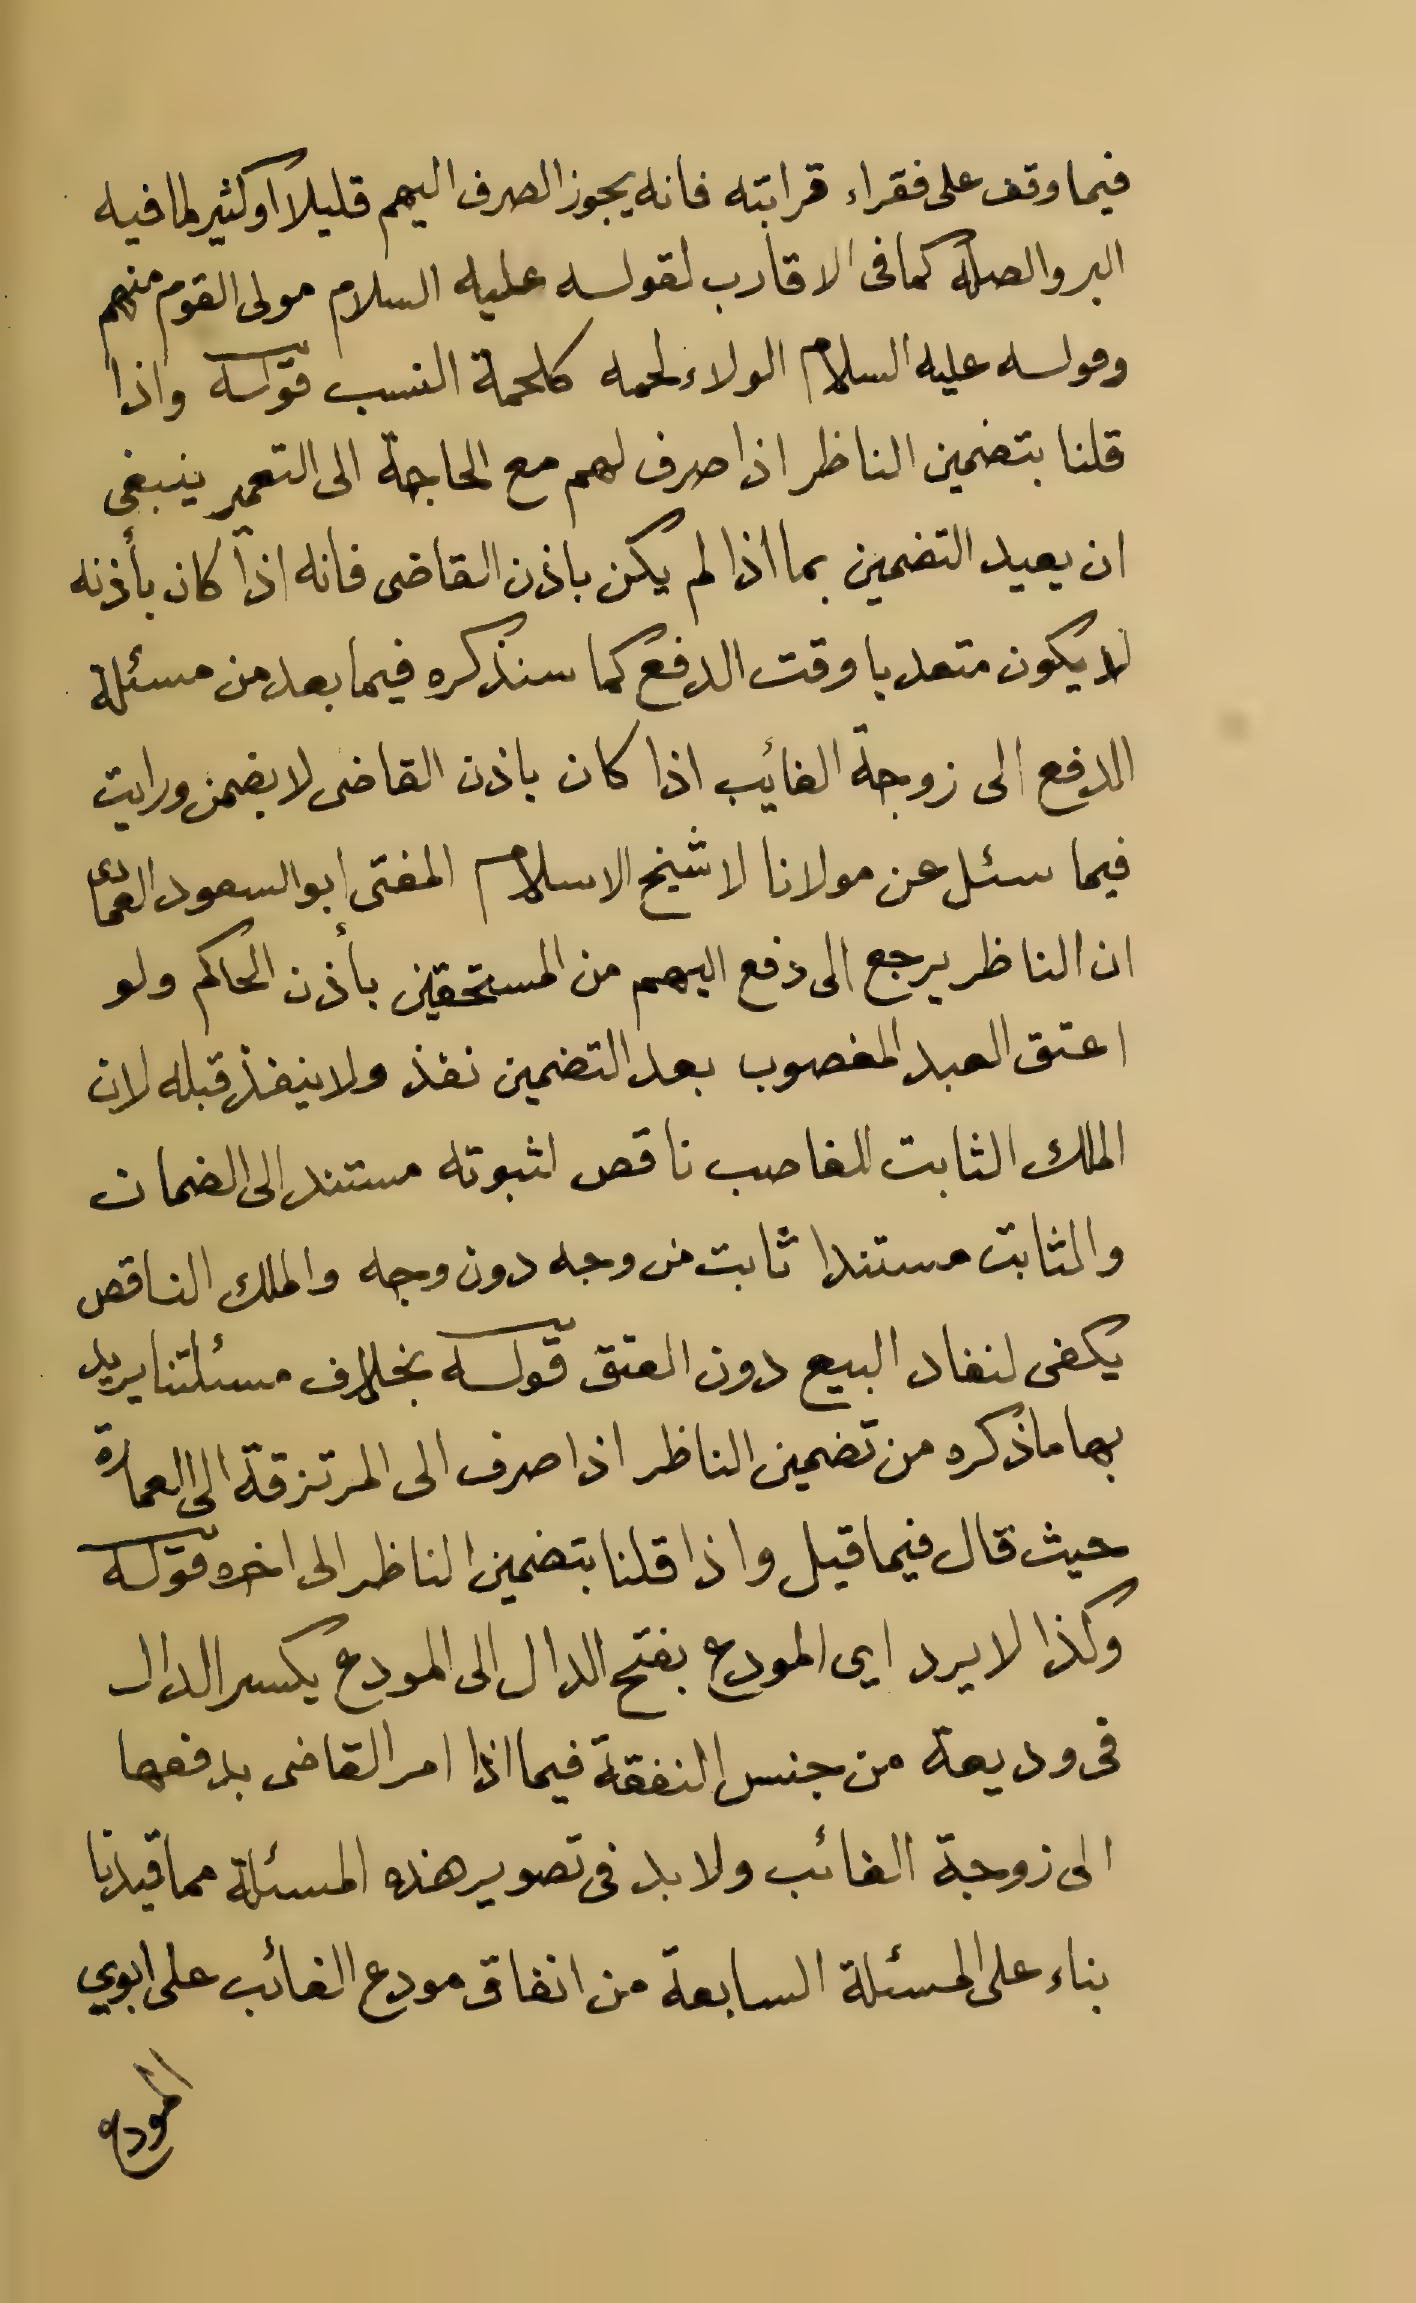 فيما وقف على فقراء قرابته فانه يجوز الصرف اليهم قليلا او كثير لما فيه
البر والصلة كما فى الاقارب لقوله عليه السلام مولى القوم منهم
وقوله عليه السلام الولاء لحمه كلحمة النسب قوله واذا
قلنا بتضمين الناظر اذا صرف لهم مع الحاجة الى التعمير ينبغى
ان يعيد التضمين بما اذا لم يكن باذن القاضى فانه اذا كان بأذنه
لا يكون متعديا وقت الدفع كما سنذكره فيما بعد من مسئلة
الدفع الى زوجة الغائب اذا كان باذن القاضى لا يضمن ورايت
فيما سئل عن مولانا لا شيخ الاسلام المفتى ابو السعود العمادى
ان الناظر يرجع الى دفع اليهم من المستحقين بأذن الحاكم ولو
اعتق العبد المغصوب بعد التضمين نفذ ولا ينفذ قبله لان
الملك الثابت للغاصب ناقص لثبوته مستند الى الضمان
والثابت مستندا ثابت من وجه دون وجه والملك الناقص
يكفى لنفاد البيع دون العتق قوله بخلاف مسئلتنا يريد
بها ما ذكره من تضمين الناظر اذا صرف الى المرتزقة الى العمارة
حيث قال فيما قيل واذا قلنا بتضمين الناظر الى اخره قوله
وكذا لا يرد اى المودع بفتح الدال الى المودع بكسر الدال
فى وديعة من جنس النفقة فيما اذا امر القاضى بدفعها
الى زوجة الغائب ولا بد فى تصوير هذه المسئلة مما قيدنا
بناء على المسئلة السابعة من انفاق مودع الغائب على ابوي
المودع